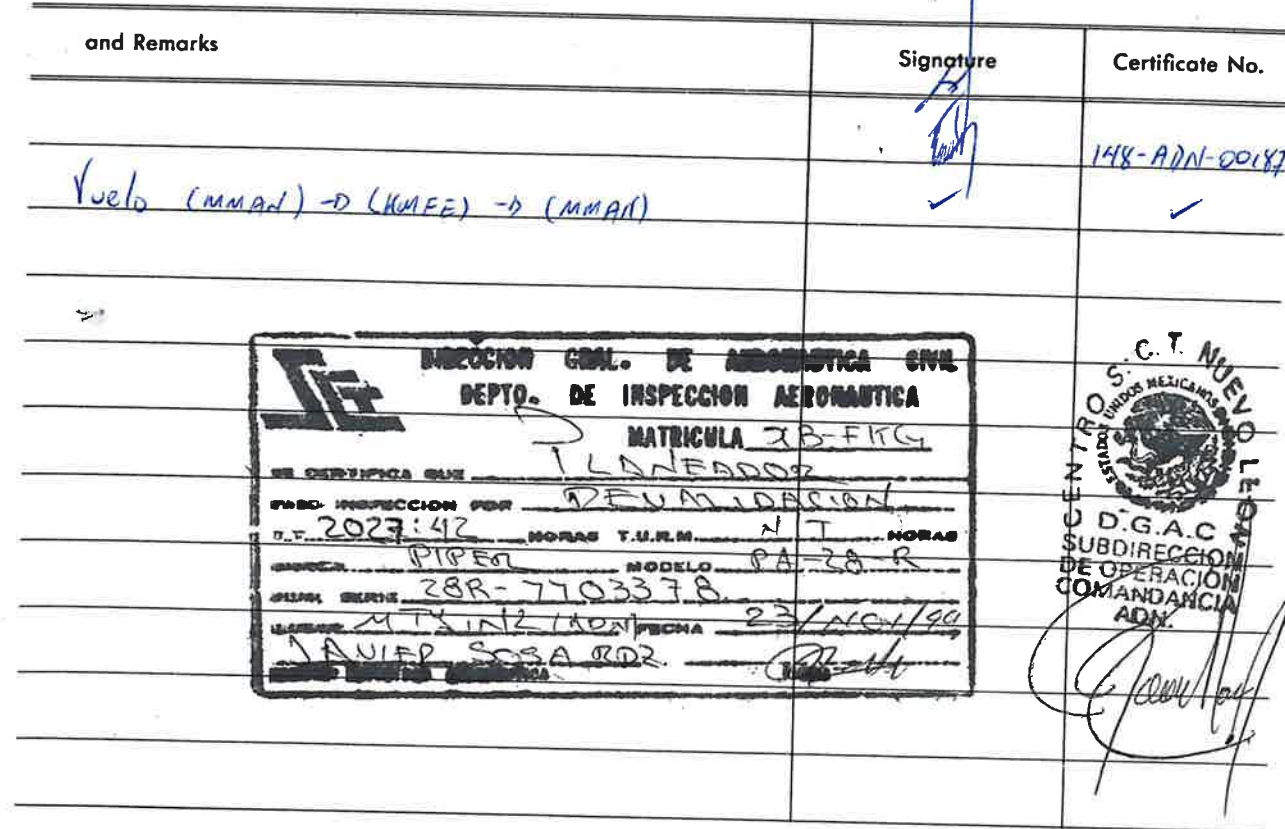 and Remarks
Signature
Certificate No.
148-ADN-00187
Vuelo (MMAN) → (KMFE) → (MMAN)
DIRECCION GRAL. DE AERONAUTICA CIVIL
DEPTO. DE INSPECCION AERONAUTICA
MATRICULA XB-FKG
SE CERTIFICA QUE PLANEADOR
PASO INSPECCION POR REVALIDACION
T.T. 2027:42 HORAS T.U.R.M. N T HORAS
MARCA PIPER MODELO PA-28-R
NUM. SERIE 28R-7703378
LUGAR MTY, N.L. (ADN) FECHA 23/NOV/99
JAVIER SOSA RDZ.
FIRMA
CENTRO S.C.T. NUEVO LEON
ESTADOS UNIDOS MEXICANOS
D.G.A.C
SUBDIRECCION
DE OPERACIÓN
COMANDANCIA
ADN.